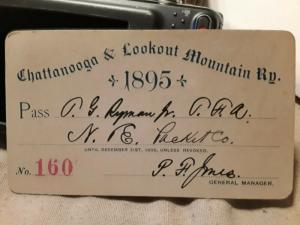 Chattanooga & Lookout Mountain Ry.
1895
Pass T. G. Ryman Jr. T. F. A.
N. E. Packet Co.
UNTIL DECEMBER 31ST, 1895, UNLESS REVOKED.
No. 160
GENERAL MANAGER.